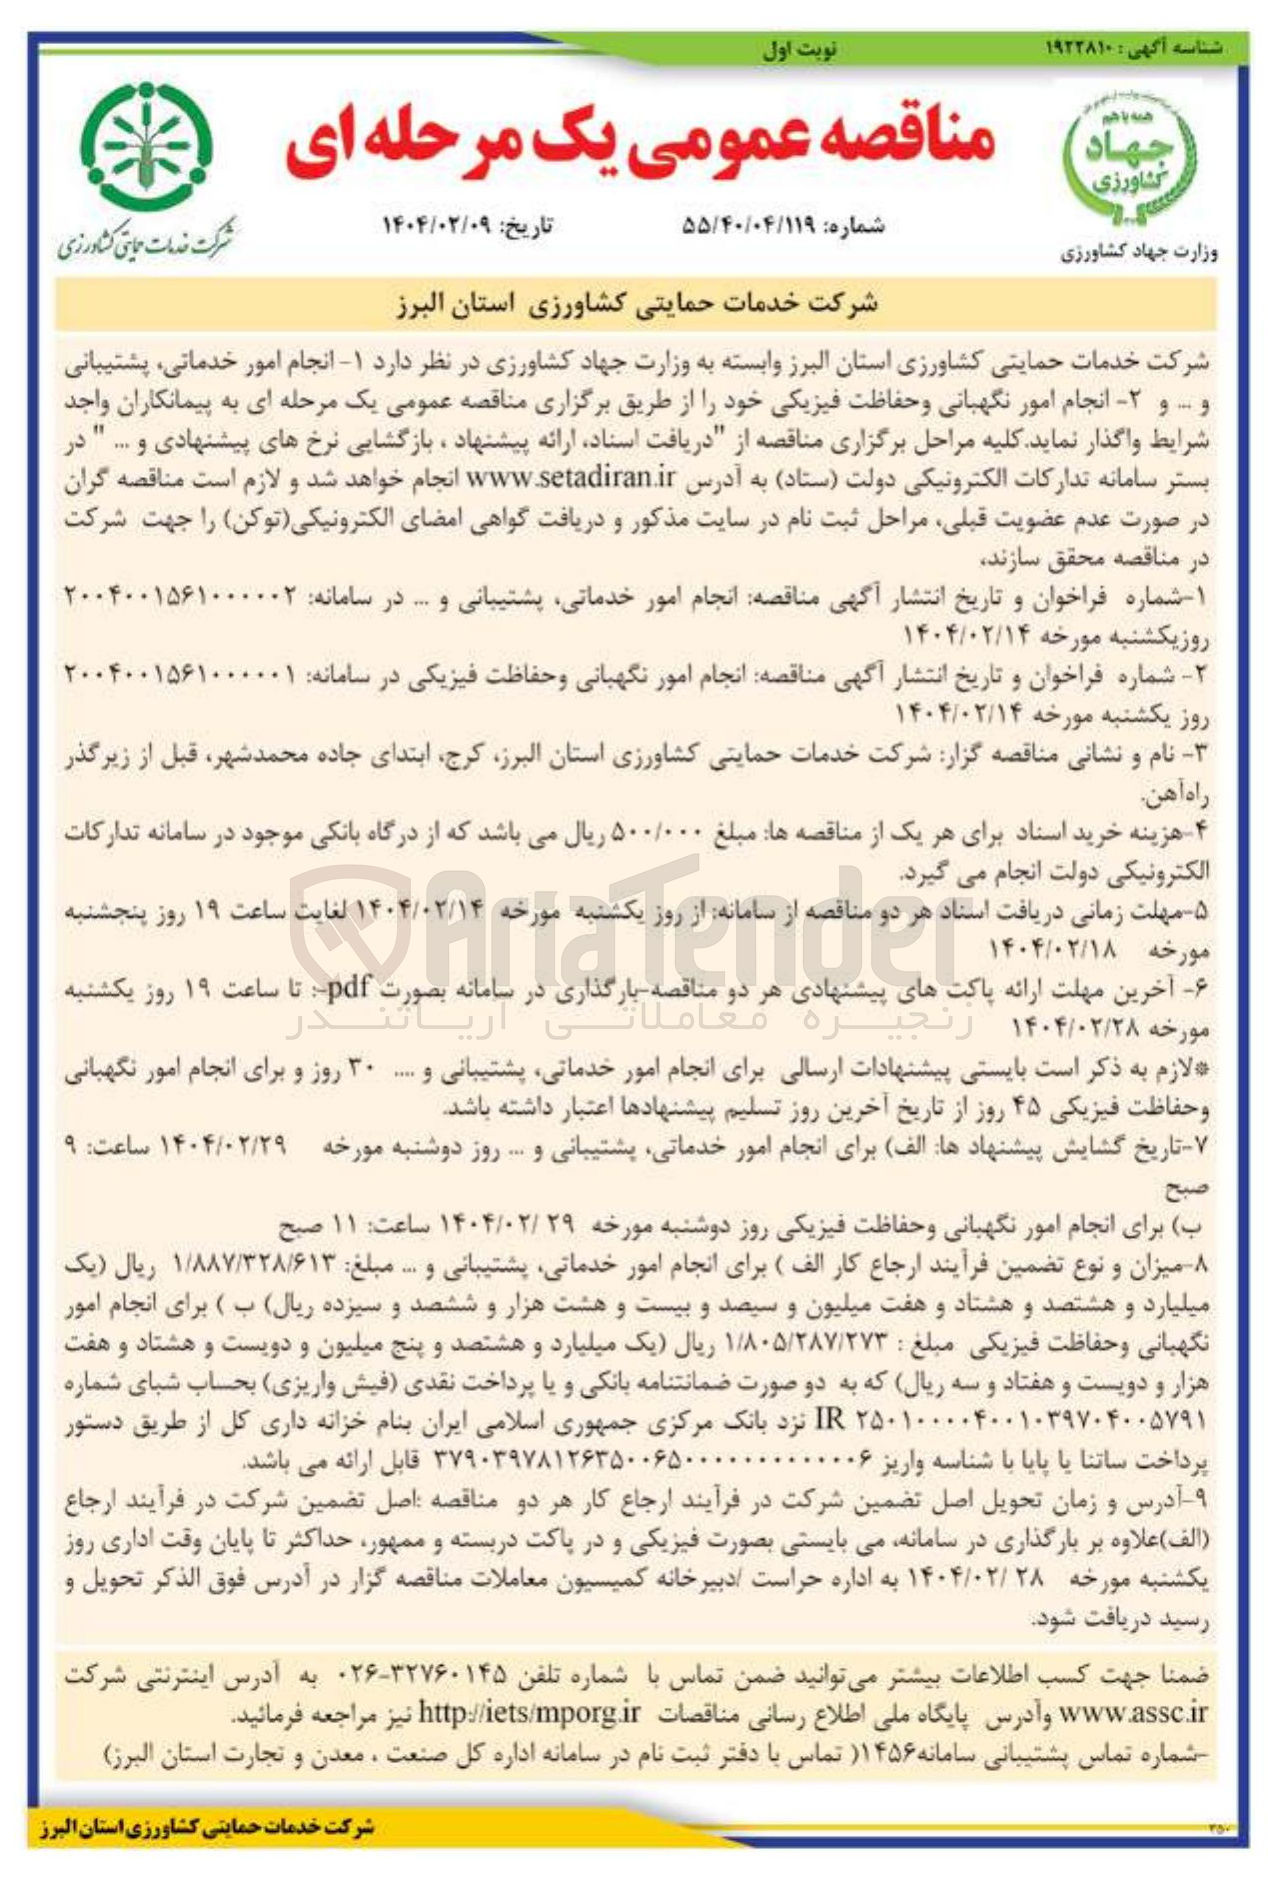 شناسه آگهی : ۱۹۲۲۸۱۰
نوبت اول
همه با هم
جهاد
کشاورزی
وزارت جهاد کشاورزی
مناقصه عمومی یک مرحله ای
شماره: ۵۵/۴۰/۰۴/۱۱۹
تاریخ: ۱۴۰۴/۰۲/۰۹
شرکت خدمات حمایتی کشاورزی
شرکت خدمات حمایتی کشاورزی استان البرز
شرکت خدمات حمایتی کشاورزی استان البرز وابسته به وزارت جهاد کشاورزی در نظر دارد ۱- انجام امور خدماتی، پشتیبانی
و ... و ۲- انجام امور نگهبانی وحفاظت فیزیکی خود را از طریق برگزاری مناقصه عمومی یک مرحله ای به پیمانکاران واجد
شرایط واگذار نماید.کلیه مراحل برگزاری مناقصه از "دریافت اسناد، ارائه پیشنهاد ، بازگشایی نرخ های پیشنهادی و ... " در
بستر سامانه تدارکات الکترونیکی دولت (ستاد) به آدرس www.setadiran.ir انجام خواهد شد و لازم است مناقصه گران
در صورت عدم عضویت قبلی، مراحل ثبت نام در سایت مذکور و دریافت گواهی امضای الکترونیکی(توکن) را جهت شرکت
در مناقصه محقق سازند،
۱-شماره فراخوان و تاریخ انتشار آگهی مناقصه: انجام امور خدماتی، پشتیبانی و ... در سامانه: ۲۰۰۴۰۰۱۵۶۱۰۰۰۰۰۲
روزیکشنبه مورخه ۱۴۰۴/۰۲/۱۴
۲- شماره فراخوان و تاریخ انتشار آگهی مناقصه: انجام امور نگهبانی وحفاظت فیزیکی در سامانه: ۲۰۰۴۰۰۱۵۶۱۰۰۰۰۰۱
روز یکشنبه مورخه ۱۴۰۴/۰۲/۱۴
۳- نام و نشانی مناقصه گزار: شرکت خدمات حمایتی کشاورزی استان البرز، کرج، ابتدای جاده محمدشهر، قبل از زیرگذر
راه‌آهن.
۴-هزینه خرید اسناد برای هر یک از مناقصه ها: مبلغ ۵۰۰/۰۰۰ ریال می باشد که از درگاه بانکی موجود در سامانه تدارکات
الکترونیکی دولت انجام می گیرد.
۵-مهلت زمانی دریافت اسناد هر دو مناقصه از سامانه: از روز یکشنبه مورخه ۱۴۰۴/۰۲/۱۴ لغایت ساعت ۱۹ روز پنجشنبه
مورخه ۱۴۰۴/۰۲/۱۸
AriaTender
۶- آخرین مهلت ارائه پاکت های پیشنهادی هر دو مناقصه-بارگذاری در سامانه بصورت pdf-: تا ساعت ۱۹ روز یکشنبه
مورخه ۱۴۰۴/۰۲/۲۸
زنجیره معاملاتی آریاتندر
*لازم به ذکر است بایستی پیشنهادات ارسالی برای انجام امور خدماتی، پشتیبانی و .... ۳۰ روز و برای انجام امور نگهبانی
وحفاظت فیزیکی ۴۵ روز از تاریخ آخرین روز تسلیم پیشنهادها اعتبار داشته باشد.
۷-تاریخ گشایش پیشنهاد ها: الف) برای انجام امور خدماتی، پشتیبانی و ... روز دوشنبه مورخه ۱۴۰۴/۰۲/۲۹ ساعت: ۹
صبح
ب) برای انجام امور نگهبانی وحفاظت فیزیکی روز دوشنبه مورخه ۱۴۰۴/۰۲/ ۲۹ ساعت: ۱۱ صبح
۸-میزان و نوع تضمین فرآیند ارجاع کار الف ) برای انجام امور خدماتی، پشتیبانی و ... مبلغ: ۱/۸۸۷/۳۲۸/۶۱۳ ریال (یک
میلیارد و هشتصد و هشتاد و هفت میلیون و سیصد و بیست و هشت هزار و ششصد و سیزده ریال) ب ) برای انجام امور
نگهبانی وحفاظت فیزیکی مبلغ : ۱/۸۰۵/۲۸۷/۲۷۳ ریال (یک میلیارد و هشتصد و پنج میلیون و دویست و هشتاد و هفت
هزار و دویست و هفتاد و سه ریال) که به دو صورت ضمانتنامه بانکی و یا پرداخت نقدی (فیش واریزی) بحساب شبای شماره
IR ۲۵۰۱۰۰۰۰۴۰۰۱۰۳۹۷۰۴۰۰۵۷۹۱ نزد بانک مرکزی جمهوری اسلامی ایران بنام خزانه داری کل از طریق دستور
پرداخت ساتنا یا پایا با شناسه واریز ۳۷۹۰۳۹۷۸۱۲۶۳۵۰۰۶۵۰۰۰۰۰۰۰۰۰۰۰۰۰۶ قابل ارائه می باشد.
۹-آدرس و زمان تحویل اصل تضمین شرکت در فرآیند ارجاع کار هر دو مناقصه :اصل تضمین شرکت در فرآیند ارجاع
(الف)علاوه بر بارگذاری در سامانه، می بایستی بصورت فیزیکی و در پاکت دربسته و ممهور، حداکثر تا پایان وقت اداری روز
یکشنبه مورخه ۱۴۰۴/۰۲/ ۲۸ به اداره حراست /دبیرخانه کمیسیون معاملات مناقصه گزار در آدرس فوق الذکر تحویل و
رسید دریافت شود.
ضمنا جهت کسب اطلاعات بیشتر می‌توانید ضمن تماس با شماره تلفن ۳۲۷۶۰۱۴۵-۰۲۶ به آدرس اینترنتی شرکت
www.assc.ir وآدرس پایگاه ملی اطلاع رسانی مناقصات http://iets/mporg.ir نیز مراجعه فرمائید.
-شماره تماس پشتیبانی سامانه۱۴۵۶( تماس با دفتر ثبت نام در سامانه اداره کل صنعت ، معدن و تجارت استان البرز)
شرکت خدمات حمایتی کشاورزی استان البرز
۳۵۰